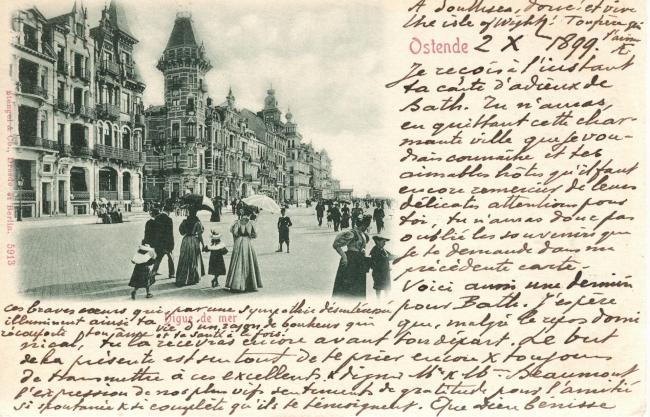 A Southsea, donc, et vive
the isle of Wight! Toupère qui
t'aime
Ostende 2 X 1899.
Je reçois à l'instant
ta carte d'adieux de
Bath. Tu n'auras,
en quittant cette char-
mante ville que je vou-
drais connaître et tes
aimables hôtes qu'il faut
encore remercier de leurs
délicates attentions pour
toi, tu n'auras donc pas
oublié les souvenirs que
je te demande dans ma
précédente carte.
Voici aussi une dernière
pour Bath. J'espère
que, malgré le repos domi
nical, tu la recevras encore avant ton départ. Le but
de la présente est surtout de te prier encore & toujours
de transmettre à ces excellents & dignes Mr & Me Beaumont
l'expression de nos plus vifs sentiments de gratitude pour l'amitié
si spontanée & si complète qu'ils te témoignent. Que Dieu bénisse
ces braves cœurs, qui, par une sympathie désintéressée
illuminent ainsi ta vie d'un rayon de bonheur qui
réconforte ton âme et ta santé à la fois!
Digue de mer
Stengel & Co., Dresde et Berlin. 5913